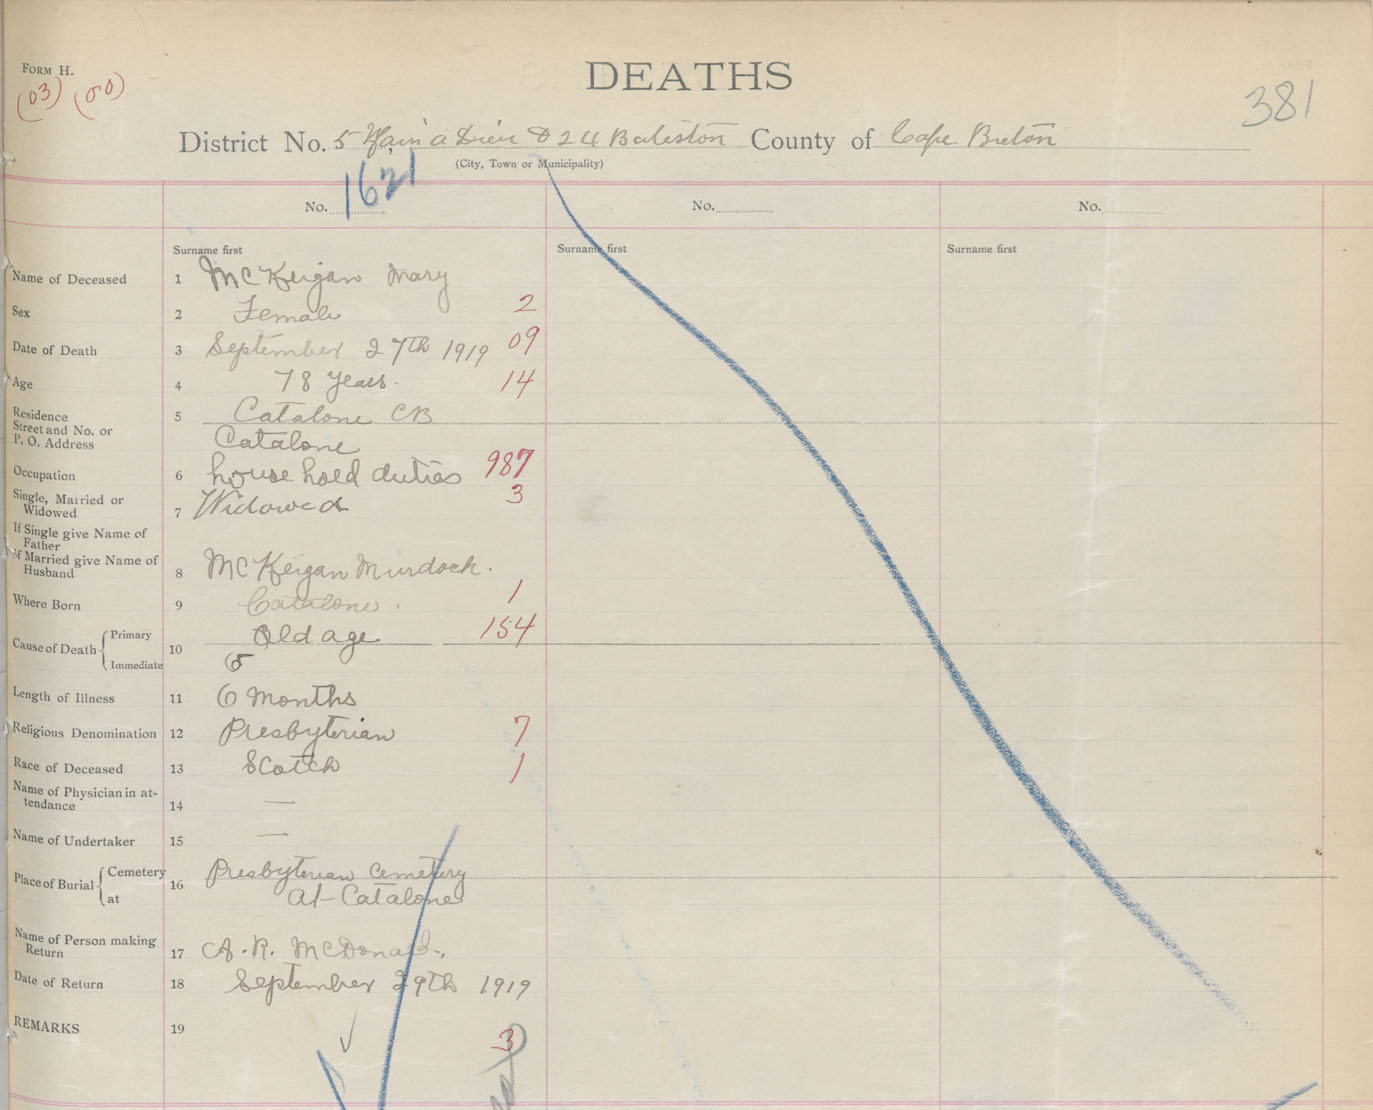 FORM H.
(03) (00)
DEATHS
381
District No. 5 Main a Dieu & 24 Bateston County of Cape Breton
(City, Town or Municipality)
No. 1621 No. No.
Surname first Surname first Surname first
Name of Deceased 1 McKeigan Mary
Sex 2 Female 2
Date of Death 3 September 27th 1919 09
Age 4 78 years. 14
Residence 5 Catalone CB
Street and No. or
P. O. Address Catalone
Occupation 6 house hold duties 987
Single, Married or
Widowed 7 Widowed 3
If Single give Name of
Father
If Married give Name of
Husband 8 McKeigan Murdock.
Where Born 9 Catalone. 1
Cause of Death Primary 10 Old age 154
Immediate
Length of Illness 11 6 Months
Religious Denomination 12 Presbyterian 7
Race of Deceased 13 Scotch 1
Name of Physician in at-
tendance 14 —
Name of Undertaker 15 —
Place of Burial Cemetery 16 Presbyterian Cemetery
at At Catalone
Name of Person making
Return 17 A. R. McDonald.
Date of Return 18 September 29th 1919
REMARKS 19
3